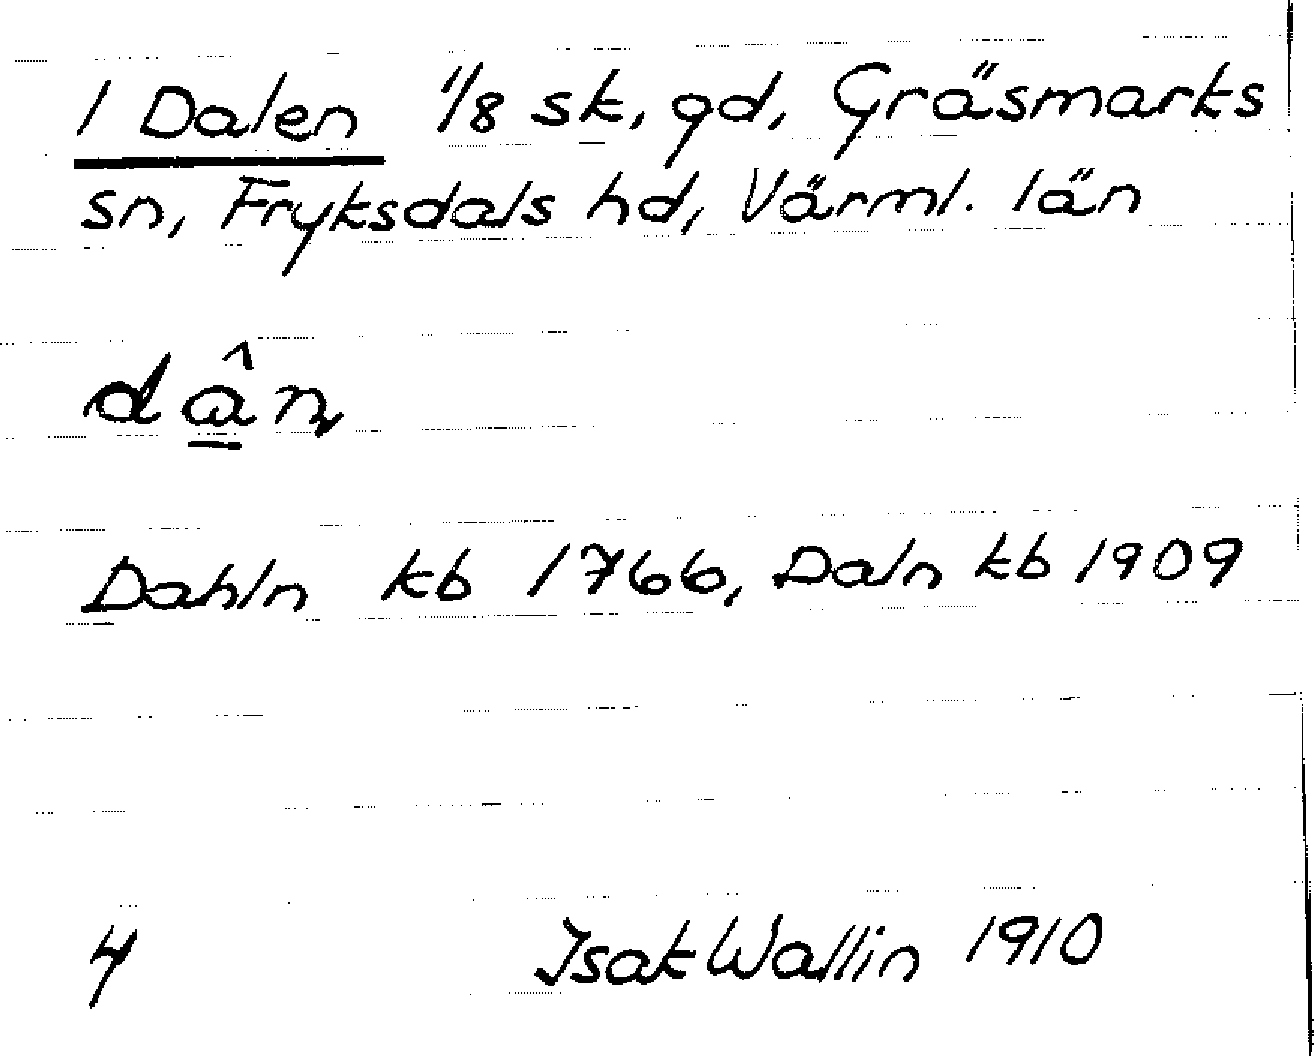 1 Dalen 1/8 sk, gd, Gräsmarks
sn, Fryksdals hd, Värml. län
dân
Dahln kb 1766, Daln kb 1909
4 Isak Wallin 1910